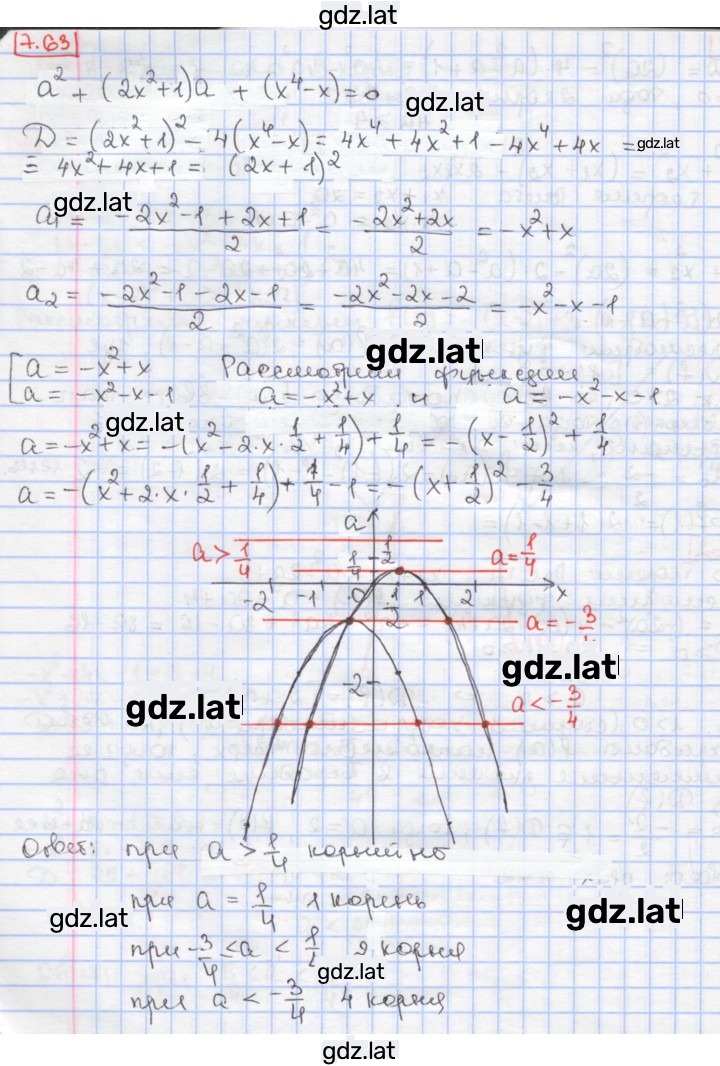 gdz.lat
7.63
a² + (2x²+1)a + (x⁴-x)=0
gdz.lat
D = (2x²+1)² - 4(x⁴-x) = 4x⁴ + 4x²+1 - 4x⁴ + 4x = gdz.lat
= 4x²+4x+1 = (2x+1)²
gdz.lat
a₁ = (-2x²-1+2x+1)/2 = (-2x²+2x)/2 = -x²+x
a₂ = (-2x²-1-2x-1)/2 = (-2x²-2x-2)/2 = -x²-x-1
gdz.lat
[a = -x²+x Рассмотрим функции
[a = -x²-x-1 a=-x²+x и a=-x²-x-1
gdz.lat
a=-x²+x= -(x²-2·x·1/2+1/4)+1/4 = -(x-1/2)²+1/4
a=-(x²+2·x·1/2+1/4)+1/4-1= -(x+1/2)²-3/4
a
a>1/4 1/4 1/2 a=1/4
-2 -1 0 1/2 1 2 x
a=-3/
gdz.lat
-2
gdz.lat
a<-3/4
Ответ: при a>1/4 корний нет
при a = 1/4 1 корень
gdz.lat
gdz.lat
при -3/4 ≤ a < 1/ 2 корня
gdz.lat
при a < -3/4 4 корня
gdz.lat